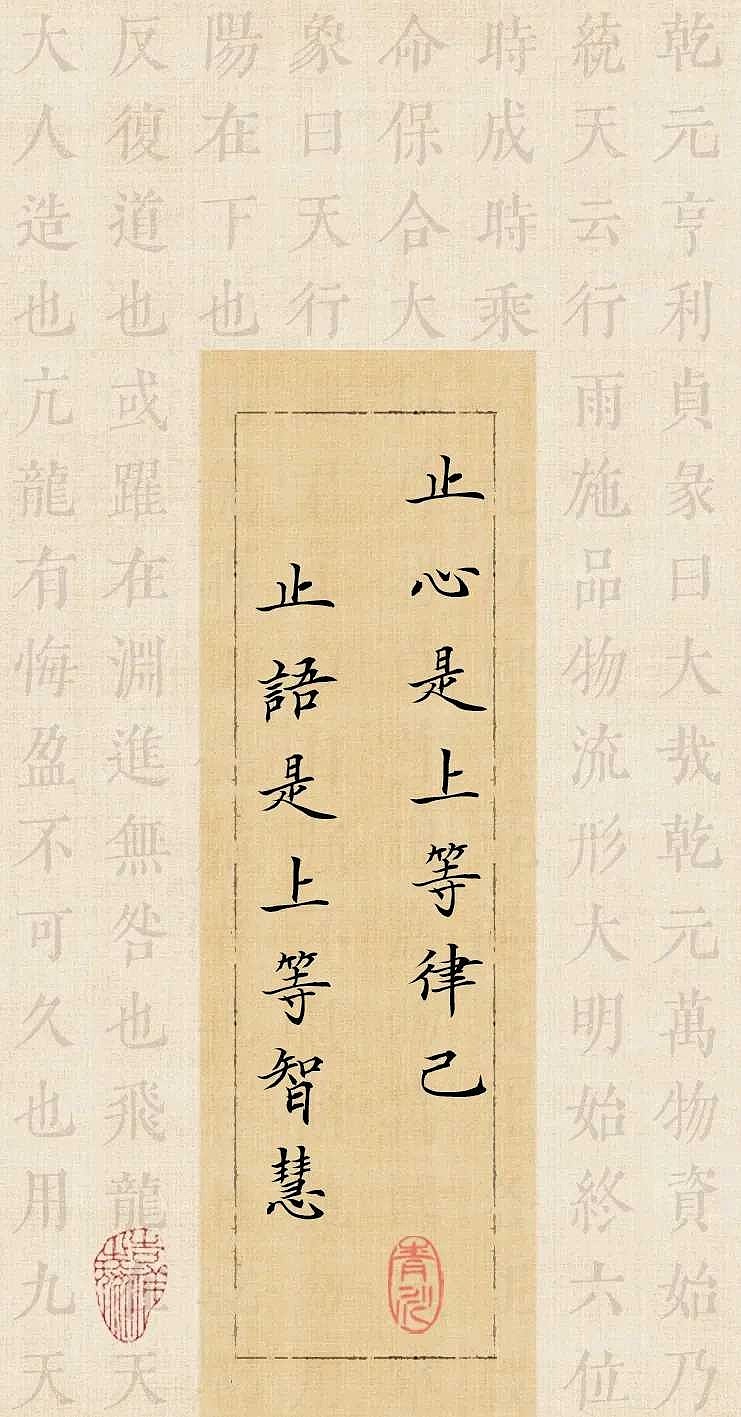 乾元亨利貞彖曰大哉乾元萬物資始乃
統天云行雨施品物流形大明始終六位
時成時乘
命保合大
象曰天行
陽在下也
反復道也或躍在淵進無咎也飛龍在天
大人造也亢龍有悔盈不可久也用九天
止心是上等律己
止語是上等智慧